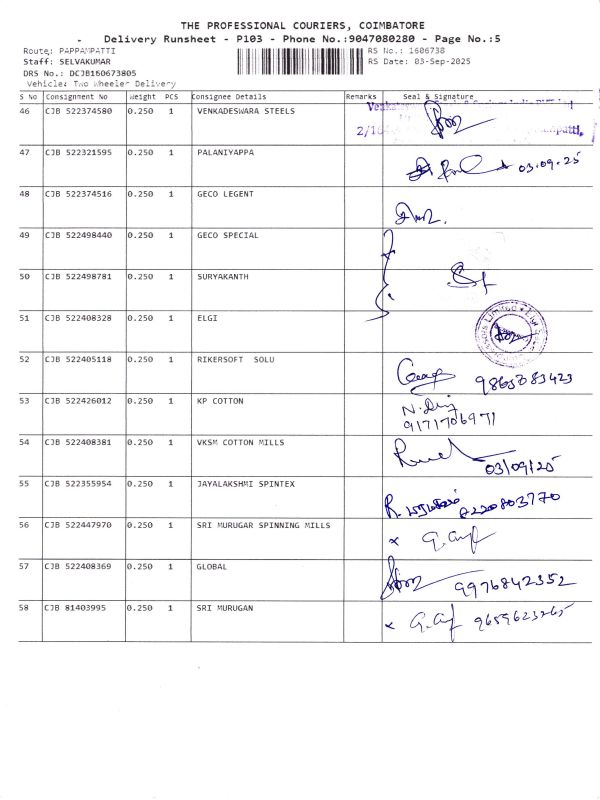 THE PROFESSIONAL COURIERS, COIMBATORE
Delivery Runsheet - P103 - Phone No.:9047080280 - Page No.:5
Route: PAPPAMPATTI RS No.: 1606738
Staff: SELVAKUMAR RS Date: 03-Sep-2025
DRS No.: DCJB160673805
Vehicle: Two Wheeler Delivery
S No Consignment No Weight PCS Consignee Details Remarks Seal & Signature
46 CJB 522374580 0.250 1 VENKADESWARA STEELS
47 CJB 522321595 0.250 1 PALANIYAPPA 03.09.25
48 CJB 522374516 0.250 1 GECO LEGENT
49 CJB 522498440 0.250 1 GECO SPECIAL
50 CJB 522498781 0.250 1 SURYAKANTH
51 CJB 522408328 0.250 1 ELGI
52 CJB 522405118 0.250 1 RIKERSOFT SOLU 9865083423
53 CJB 522426012 0.250 1 KP COTTON
9171706971
54 CJB 522408381 0.250 1 VKSM COTTON MILLS
03/09/25
55 CJB 522355954 0.250 1 JAYALAKSHMI SPINTEX
8220803770
56 CJB 522447970 0.250 1 SRI MURUGAR SPINNING MILLS
57 CJB 522408369 0.250 1 GLOBAL 9976842352
58 CJB 81403995 0.250 1 SRI MURUGAN 9659623265